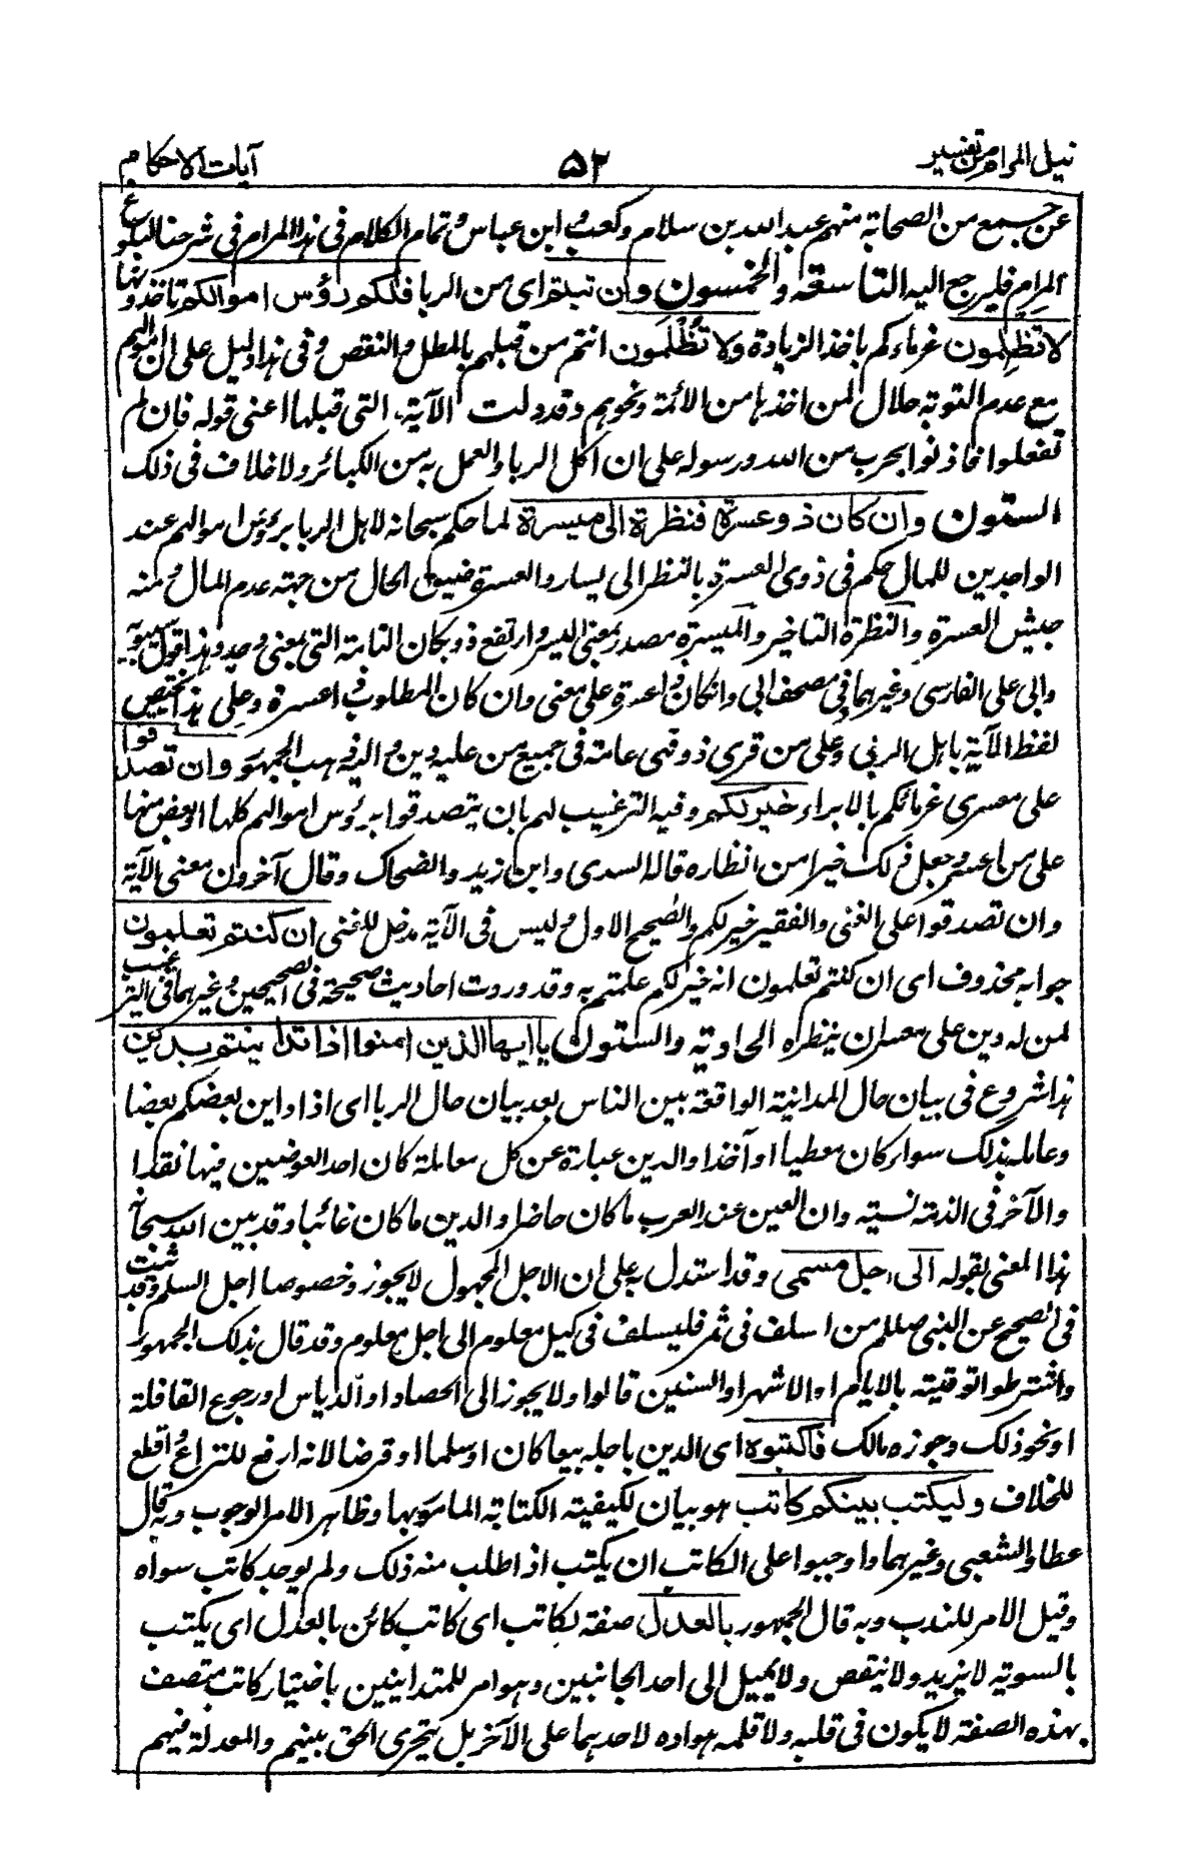 نيل المرام من تفسير ۵۲ آيات الاحكام
عن جمع من الصحابة منهم عبد الله بن سلام وكعب وابن عباس وتمام الكلام فى هذا المرام فى شرحنا لبلوغ
المرام فليرجع اليه التاسعة والخمسون وان تبتم اى من الربا فلكم رؤس اموالكم تاخذونها
لا تظلمون غرماءكم باخذ الزيادة ولا تظلمون انتم من قبلهم بالمطل والنقص وفى هذا دليل على ان اموالهم
مع عدم التوبة حلال لمن اخذها من الائمة ونحوهم وقد دلت الآية التى قبلها اعنى قوله فان لم
تفعلوا فاذنوا بحرب من الله ورسوله على ان اكل الربا والعمل به من الكبائر ولا خلاف فى ذلك
الستون وان كان ذو عسرة فنظرة الى ميسرة لما حكم سبحانه لاهل الربا برؤس اموالهم عند
الواجدين للمال حكم فى ذوى العسرة بالنظر الى يسار والعسرة ضيق الحال من جهة عدم المال ومنه
جيش العسرة والنظرة التاخير والميسرة مصدر بمعنى اليسر وارتفع ذو بكان التامة التى بمعنى وجد وهذا قول سيبويه
وابى على الفارسى وغيرهما وفى مصحف ابى وان كان ذا عسرة على معنى وان كان المطلوب ذا عسرة وعلى هذا يختص
لفظ الآية باهل الربى وعلى من قرى ذو فهى عامة فى جميع من عليه دين واليه ذهب الجمهور وان تصدقوا
على معسرى غرمائكم بالابراء خير لكم وفيه الترغيب لهم بان يتصدقوا برؤس اموالهم كلها او بعض منها
على من اعسر وجعل ذلك خيرا من انظاره قاله السدى وابن زيد والضحاك وقال آخرون معنى الآية
وان تصدقوا على الغنى والفقير خير لكم والصحيح الاول وليس فى الآية مدخل للغنى ان كنتم تعلمون
جوابه محذوف اى ان كنتم تعلمون انه خير لكم علمتم به وقد وردت احاديث صحيحة فى الصحيحين وغيرهما فى الترغيب
لمن له دين على معسر ان ينظره الحادية والستون يا ايها الذين امنوا اذا تداينتم بدين
هذا شروع فى بيان حال المداينة الواقعة بين الناس بعد بيان حال الربا اى اذا داين بعضكم بعضا
وعامله بذلك سواء كان معطيا او آخذا والدين عبارة عن كل معاملة كان احد العوضين فيها نقدا
والآخر فى الذمة نسية وان العين عند العرب ما كان حاضرا والدين ما كان غائبا وقد بين الله سبحانه
هذا المعنى بقوله الى اجل مسمى وقد استدل به على ان الاجل المجهول لا يجوز وخصوصا اجل السلم وقد ثبت
فى الصحيح عن النبى صللم من اسلف فى ثمر فليسلف فى كيل معلوم الى اجل معلوم وقد قال بذلك الجمهور
واشترطوا توقيته بالايام او الاشهر او السنين قالوا ولا يجوز الى الحصاد او الدياس او رجوع القافلة
او نحو ذلك وجوزه مالك فاكتبوه اى الدين باجله بيعا كان او سلما او قرضا لانه ارفع للنزاع واقطع
للخلاف وليكتب بينكم كاتب هو بيان لكيفية الكتابة المامور بها وظاهر الامر الوجوب وبه قال
عطا والشعبى وغيرهما واوجبوا على الكاتب ان يكتب اذا طلب منه ذلك ولم يوجد كاتب سواه
وقيل الامر للندب وبه قال الجمهور بالعدل صفة لكاتب اى كاتب كائن بالعدل اى يكتب
بالسوية لا يزيد ولا ينقص ولا يميل الى احد الجانبين وهو امر للمتداينين باختيار كاتب متصف
بهذه الصفة لا يكون فى قلبه ولا قلمه هوادة لاحدهما على الآخر بل يتحرى الحق بينهم والمعدلة فيهم